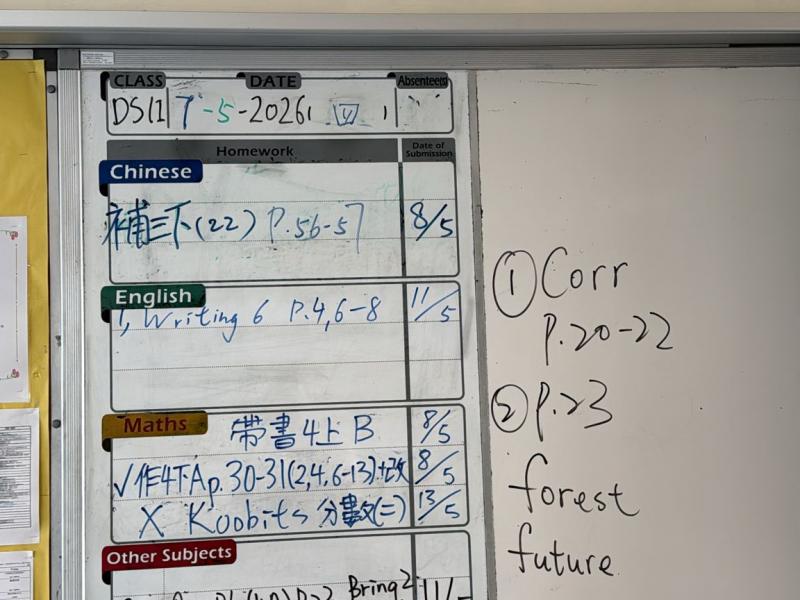 CLASS DATE Absentee(s)
DS(1) 7-5-2026, 四
Homework Date of Submission
Chinese
補三下(22) P.56-57 8/5
English
1, Writing 6 P.4,6-8 11/5
Maths
帶書4上B 8/5
√作4下A p.30-31(2,4,6-13)+改 8/5
X Koobits 分數(二) 13/5
Other Subjects
Bring 2
① Corr
P.20-22
② P.23
forest
future